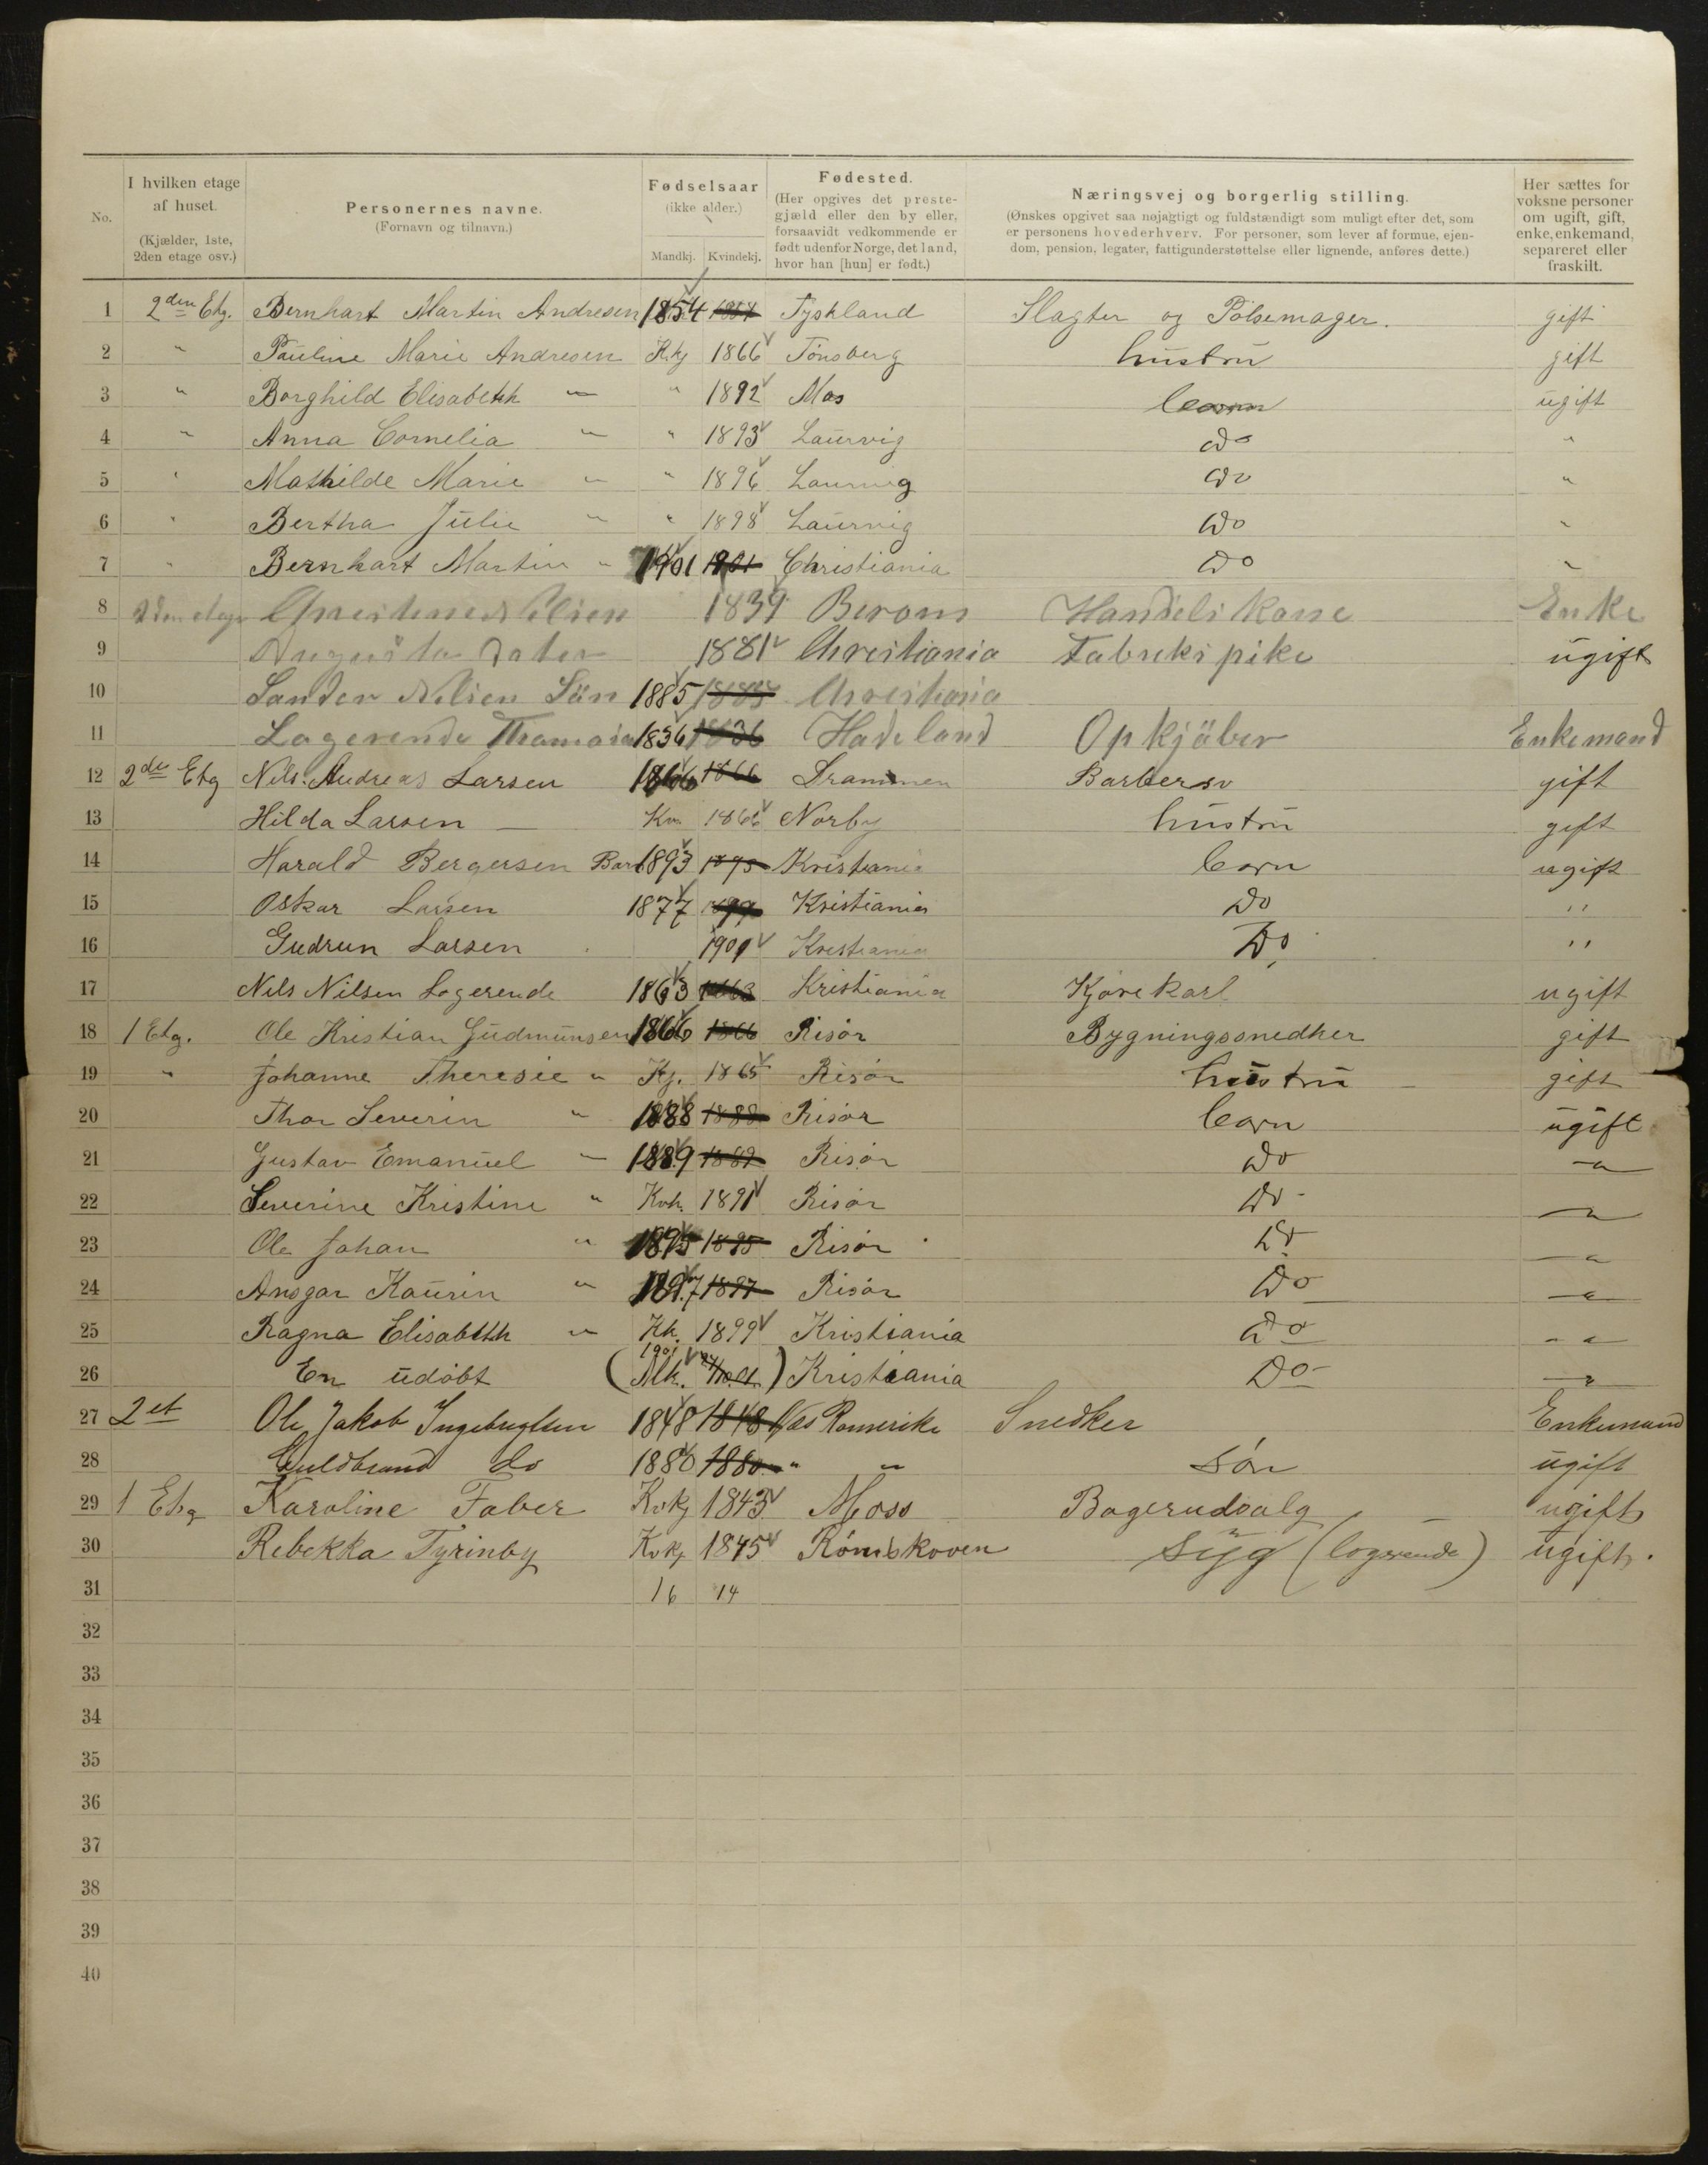 No. I hvilken etage af huset. (Kjælder, 1ste, 2den etage osv.) Personernes navne. (Fornavn og tilnavn.) Fødselsaar (ikke alder.) Mandkj. Kvindekj. Fødested. (Her opgives det prestegjæld eller den by eller, forsaavidt vedkommende er født udenfor Norge, det land, hvor han [hun] er født.) Næringsvej og borgerlig stilling. (Ønskes opgivet saa nøjagtigt og fuldstændigt som muligt efter det, som er personens hovederhverv. For personer, som lever af formue, ejendom, pension, legater, fattigunderstøttelse eller lignende, anføres dette.) Her sættes for voksne personer om ugift, gift, enke, enkemand, separeret eller fraskilt.
1 2den Etg. Bernhart Martin Andresen 1854 Tyskland Slagter og Pølsemager. gift
2 " Pauline Marie Andresen K.kj 1866 Tønsberg hustru gift
3 " Borghild Elisabethh " " 1892 Mos barn ugift
4 " Anna Cornelia " " 1893 Laurvig do "
5 " Mathilde Marie " " 1896 Laurvig do "
6 " Bertha Julie " " 1898 Laurvig do "
7 " Bernhart Martin " 1901 1901 Christiania do "
8 Nilsen 1839 Berom Handelskone Enke
9 Augusta Dater 1881 Christiania Fabrekspike ugift
10 Sander Nilsen Sün 1885 1885 Christiania
11 Logerende 1836 1836 Hadeland Opkjøber Enkemand
12 2de Etg Nils Andreas Larsen 1866 1866 Drammen Barber gift
13 Hilda Larsen Kv. 1866 Norby hustru gift
14 Harald Bergersen Barn 1893 Kristiania barn ugift
15 Oskar Larsen 1877 Kristiania Do "
16 Gudrun Larsen 1901 Kristiania Do "
17 Nils Nilsen Logerende 1863 1863 Kristiania Kjørekarl ugift
18 1 Etg. Ole Kristian Gudmunsen 1866 1866 Risør Bygningssnedker gift
19 " Johanne Theresie " Kj. 1865 Risør hustru gift
20 Thor Severin " 1888 1888 Risør barn ugift
21 Gustav Emanuel " 1889 1889 Risør do "
22 Severine Kristine " Kvk. 1891 Risør do "
23 Ole Johan " 1895 1895 Risør do "
24 Ansgar Kaurin " 1897 1897 Risør Do "
25 Ragna Elisabthh " Kk. 1899 Kristiania do "
26 En udøbt (Mk. 1901) Kristiania Do "
27 2 et Ole Jakob Ingebrigtsen 1848 1848 Næs Romerike Snedker Enkemand
28 Guldbrand do 1880 1880 " " søn ugift
29 1 Etg Karoline Faber Kvkj 1843 Moss Bagerudsalg ugift
30 Rebekka Tyrinby Kvkj 1845 Rømskoven syg (logerende) ugift.
31 16 14
32
33
34
35
36
37
38
39
40